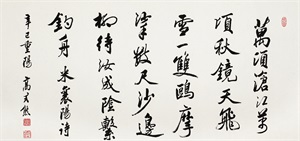 萬頃滄江萬
頃秋鏡天飛
雪一雙鷗摩
挲數尺沙邊
柳待汝成陰繫
釣舟 米襄陽詩
辛巳重陽 高